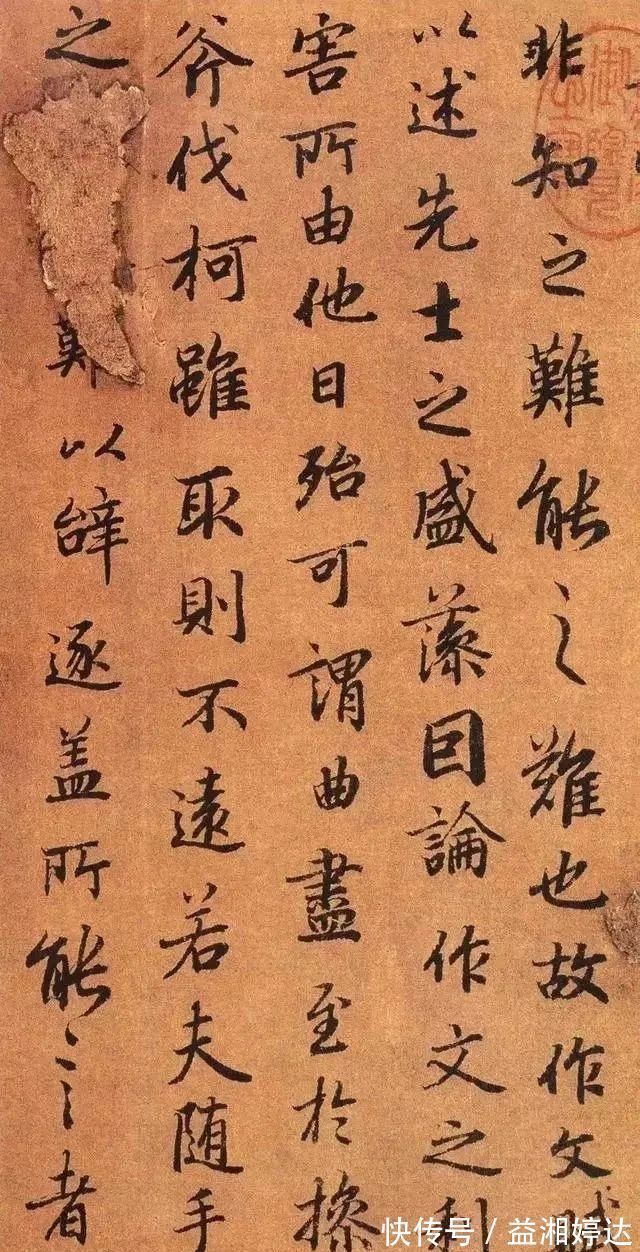 非知之難能之難也故作文賦
以述先士之盛藻因論作文之利
害所由他日殆可謂曲盡至於操
斧伐柯雖取則不遠若夫随手
之以辭逐盖所能之者
快传号 / 益湘婷达